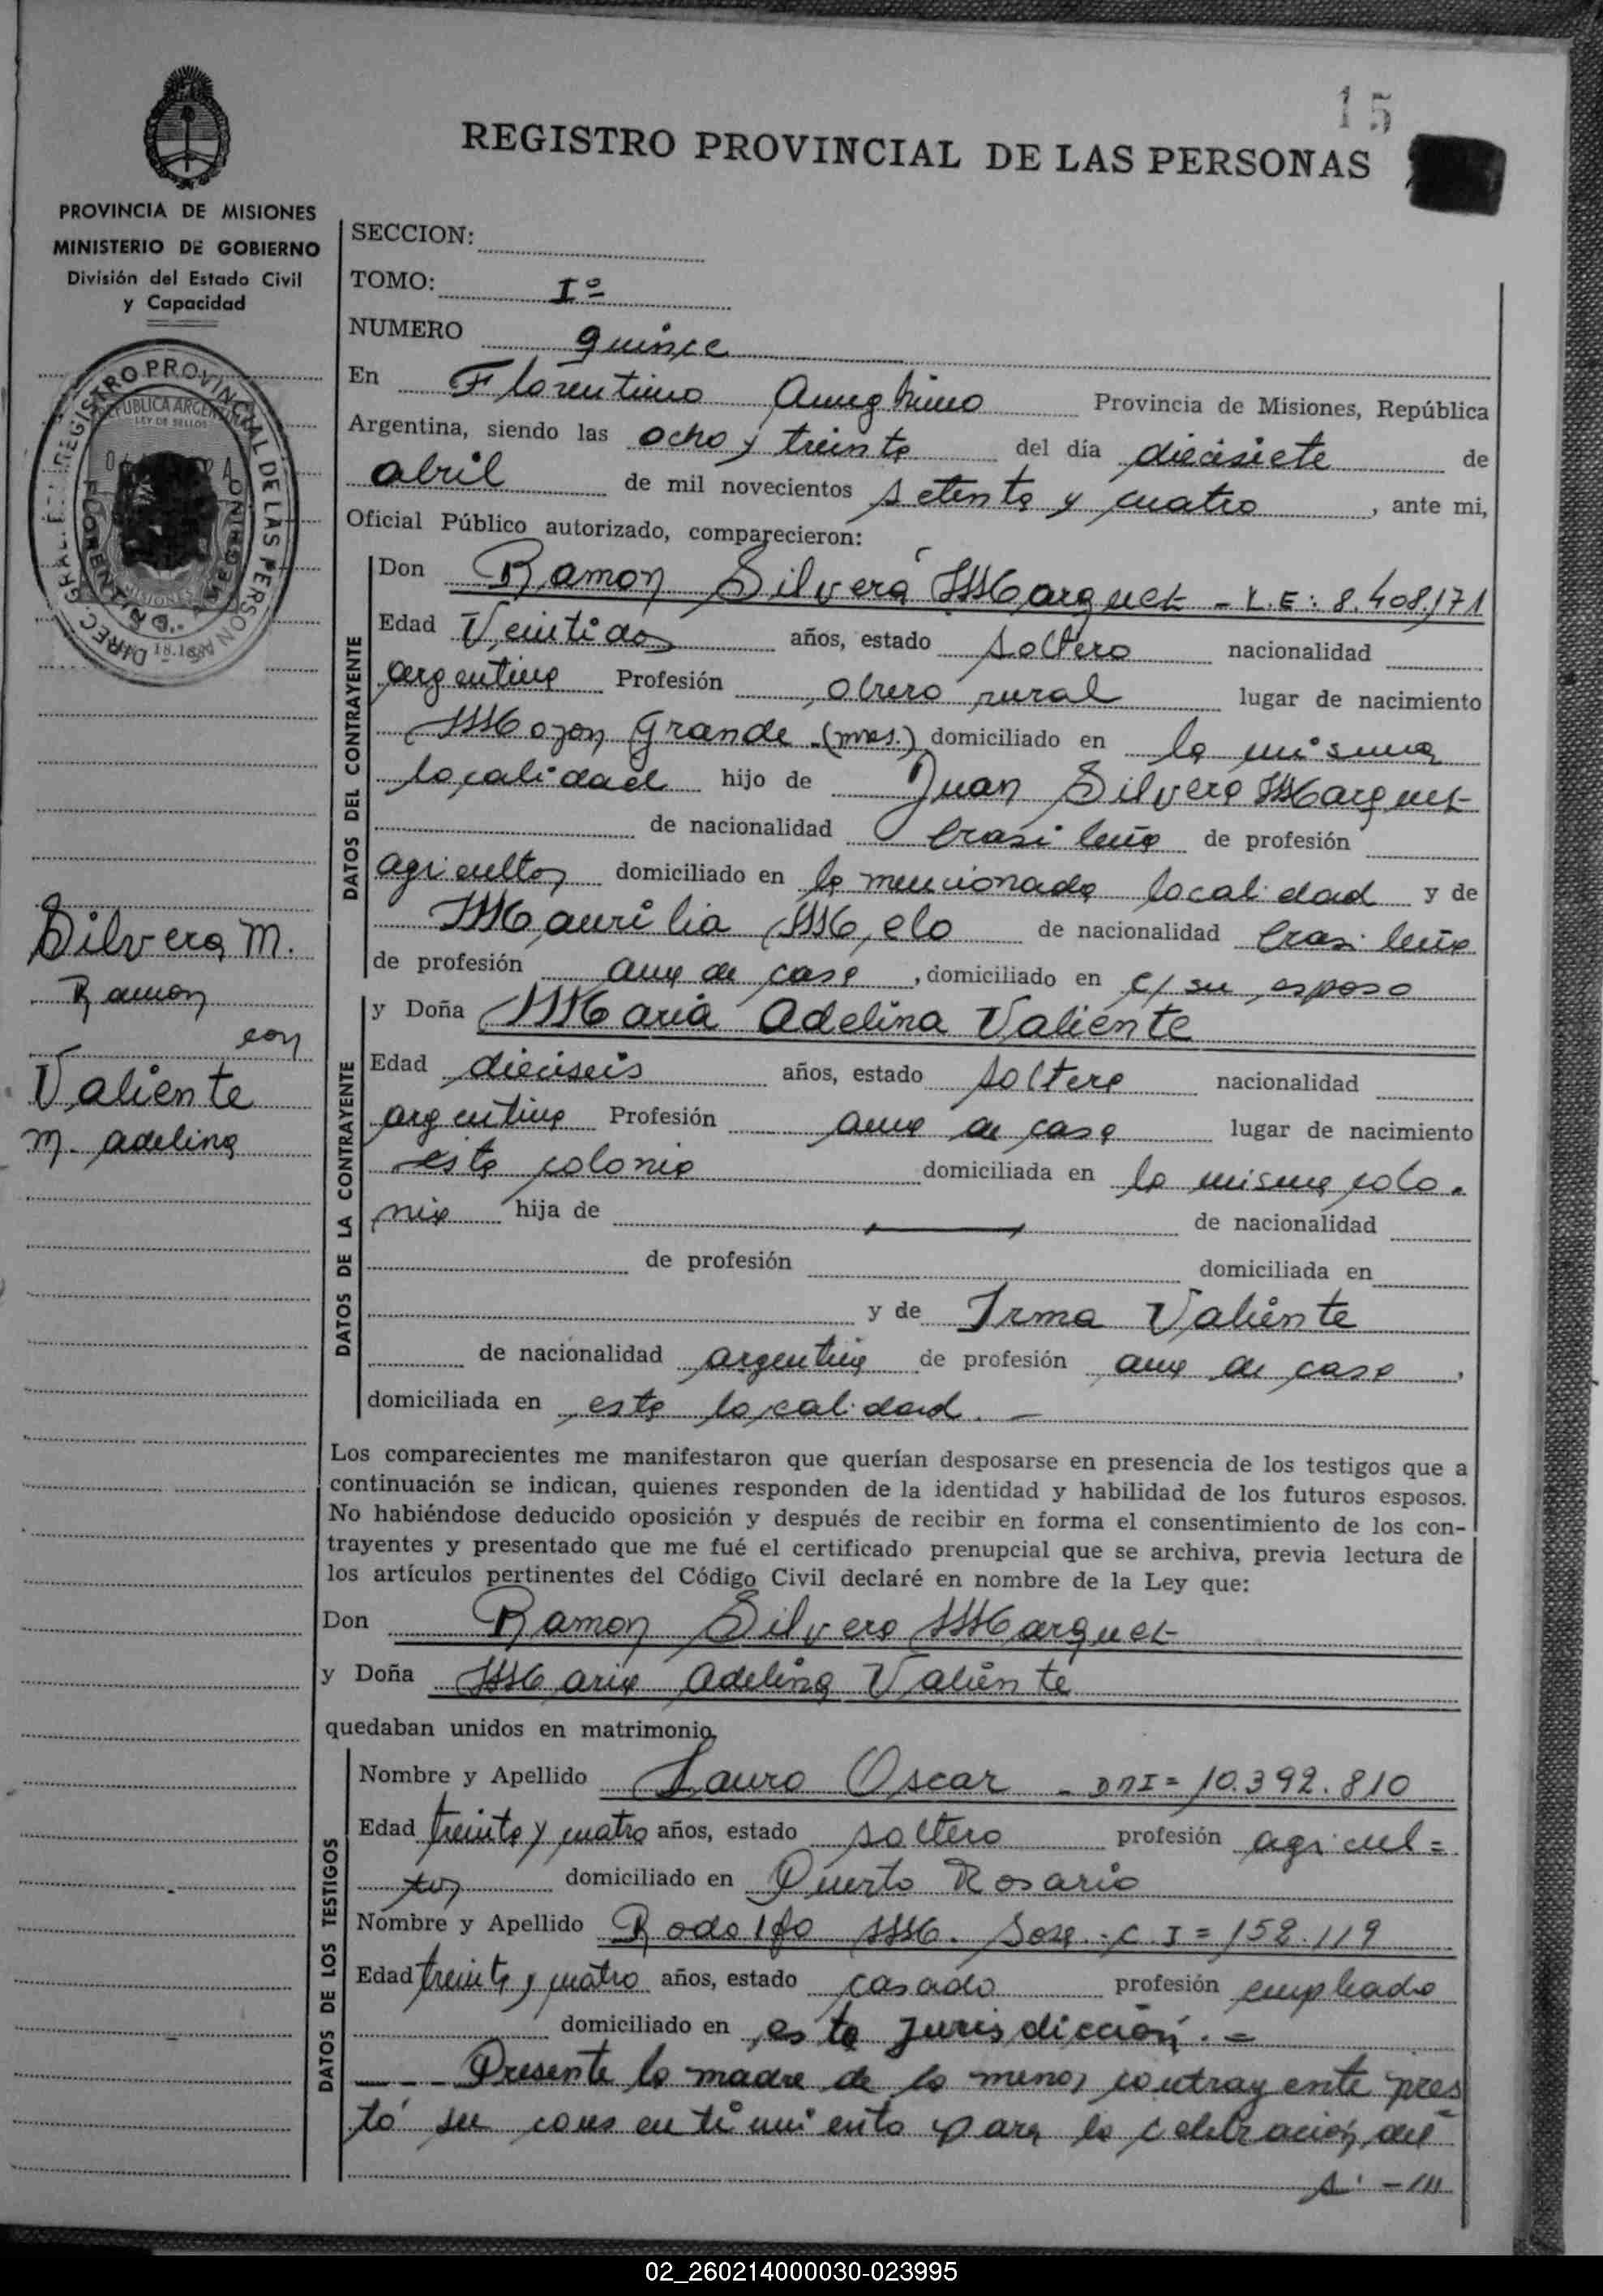 15
REGISTRO PROVINCIAL DE LAS PERSONAS
PROVINCIA DE MISIONES
MINISTERIO DE GOBIERNO
División del Estado Civil
y Capacidad
REGISTRO PROVINCIAL DE LAS PERSONAS
REPUBLICA ARGENTINA
LEY DE SELLOS
MISIONES
FLORENTINO AMEGHINO
Silvera M.
Ramon
con
Valiente
M. Adelina
SECCION:
TOMO: Iº
NUMERO quince
En Florentino Ameghino Provincia de Misiones, República
Argentina, siendo las ocho y treinta del día diecisiete de
abril de mil novecientos setenta y cuatro, ante mi,
Oficial Público autorizado, comparecieron:
DATOS DEL CONTRAYENTE
Don Ramon Silvera Marquez - L.E: 8.408.171
Edad Veintidos años, estado soltero nacionalidad
argentina Profesión obrero rural lugar de nacimiento
Mojon Grande (mnes.) domiciliado en la misma
localidad hijo de Juan Silvera Marquez
de nacionalidad brasileña de profesión
agricultor domiciliado en la mencionada localidad y de
Maurilia Melo de nacionalidad brasileña
de profesión ama de casa, domiciliado en c/ su esposo
DATOS DE LA CONTRAYENTE
y Doña Maria Adelina Valiente
Edad dieciseis años, estado soltera nacionalidad
argentina Profesión ama de casa lugar de nacimiento
esta colonia domiciliada en la misma colo-
nia hija de de nacionalidad
de profesión domiciliada en
y de Irma Valiente
de nacionalidad argentina de profesión ama de casa,
domiciliada en esta localidad. -
Los comparecientes me manifestaron que querían desposarse en presencia de los testigos que a
continuación se indican, quienes responden de la identidad y habilidad de los futuros esposos.
No habiéndose deducido oposición y después de recibir en forma el consentimiento de los con-
trayentes y presentado que me fué el certificado prenupcial que se archiva, previa lectura de
los artículos pertinentes del Código Civil declaré en nombre de la Ley que:
Don Ramon Silvera Marquez
y Doña Maria Adelina Valiente
quedaban unidos en matrimonio.
DATOS DE LOS TESTIGOS
Nombre y Apellido Lauro Oscar - DNI= 10.392.810
Edad treinta y cuatro años, estado soltero profesión agricul=
tor domiciliado en Puerto Rosario
Nombre y Apellido Rodolfo M. Sosa - C I = 152.119
Edad treinta y cuatro años, estado casado profesión empleado
domiciliado en esta Jurisdicción. =
--- Presente la madre de la menor contrayente pres
tó su consentimiento para la celebración del
02_260214000030-023995